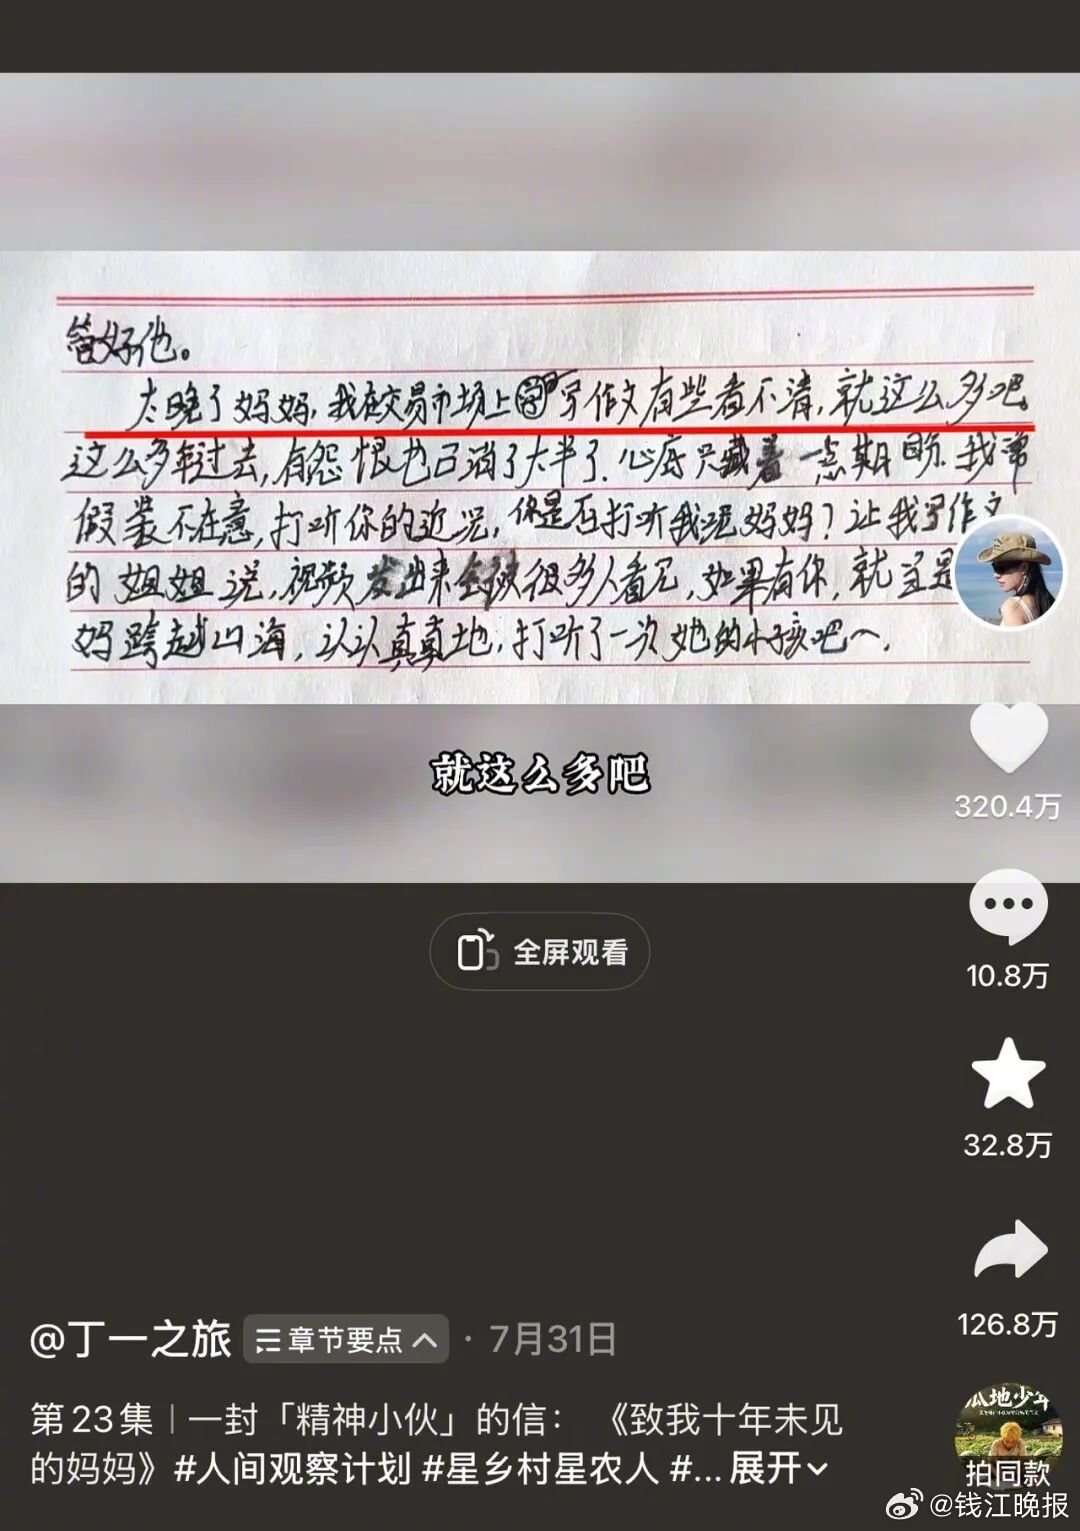 管好他。
太晚了妈妈,我在交易市场上写作文有些看不清,就这么多吧。
这么多年过去,有怨恨也已消了大半了.心底只藏着一点期盼.我常
假装不在意,打听你的近况,你是否打听我呢妈妈?让我写作文
的姐姐说,视频发出来会被很多人看见,如果有你,就当是
妈跨越山海,认认真真地,打听了一次她的小孩吧〜.
就这么多吧
320.4万
全屏观看
10.8万
32.8万
126.8万
@丁一之旅 章节要点 · 7月31日
第23集|一封「精神小伙」的信:《致我十年未见
的妈妈》#人间观察计划 #星乡村星农人 #... 展开
瓜地少年
拍同款
@钱江晚报